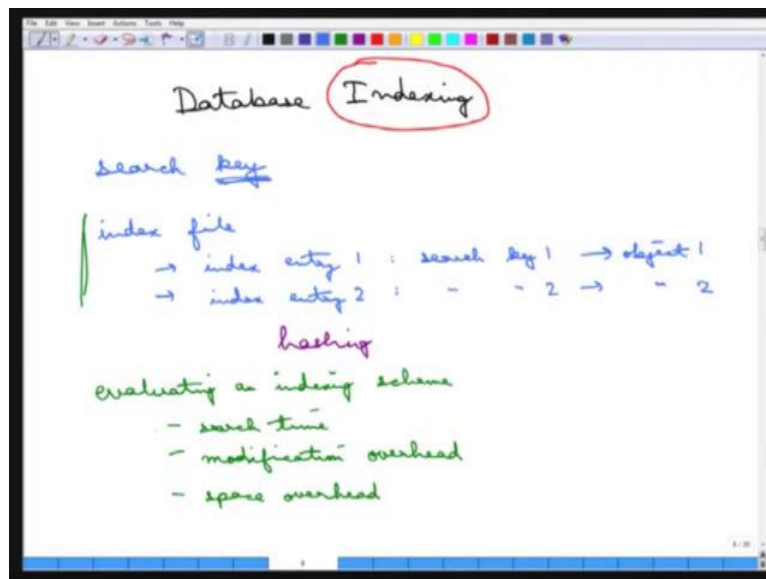 File Edit View Insert Actions Tools Help
Database Indexing
search key
index file
→ index entry 1 : search key 1 → object 1
→ index entry 2 : " " 2 → " 2
hashing
evaluating an indexing scheme
- search time
- modification overhead
- space overhead